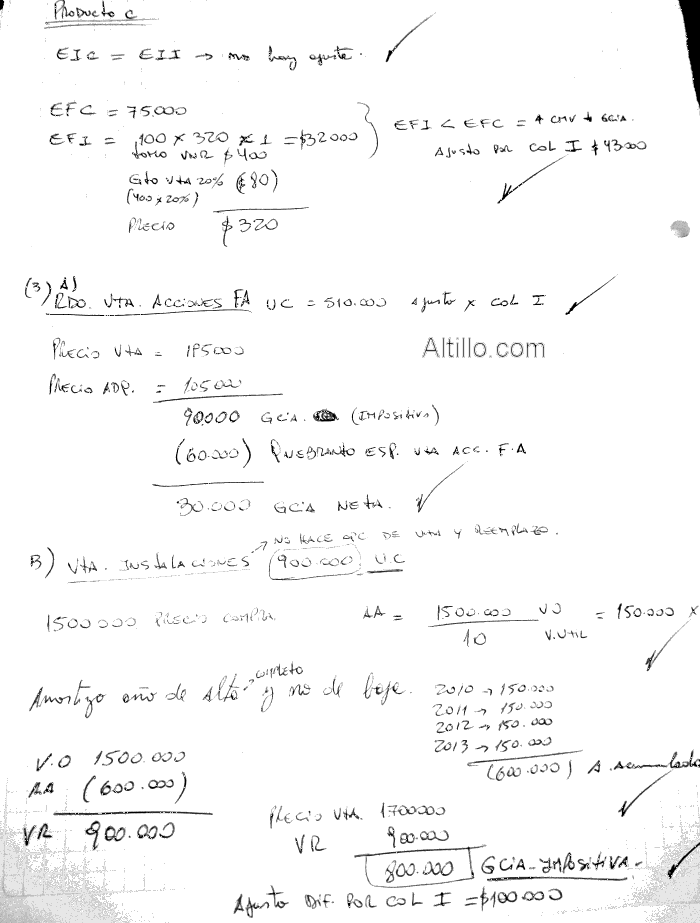 Producto C
EIC = EII → no hay ajuste.
EFC = 75.000
EFI = 100 x 320 x 1 = $32000
tomo VNR $400
Gto Vta 20% ($80)
(400 x 20%)
Precio $320
EFI < EFC = ↑ CMV ↓ GCIA.
Ajusto por Col I $43000
(3) A)
RDO. VTA. Acciones FA UC = 510.000 ajusto x Col I
Altillo.com
Precio Vta = 195000
Precio ADP. = 105000
90000 GCIA. (Impositiva)
(60.000) Quebranto ESP. Vta Acc. F.A
30.000 GCIA Neta.
→ No hace opc de vta y reemplazo.
B) Vta. Instalaciones 900.000 U.C
1500000 Precio compra
AA = 1500.000 VO = 150.000 x
10 V.Util
Amortizo año de alta → completo y no de baja.
2010 → 150.000
2011 → 150.000
2012 → 150.000
2013 → 150.000
(600.000) A. Acumulada
V.O 1500.000
AA (600.000)
VR 900.000
Precio Vta. 1700000
VR 900.000
800.000 GCIA-Impositiva-
Ajusto Dif. por Col I = $100.000